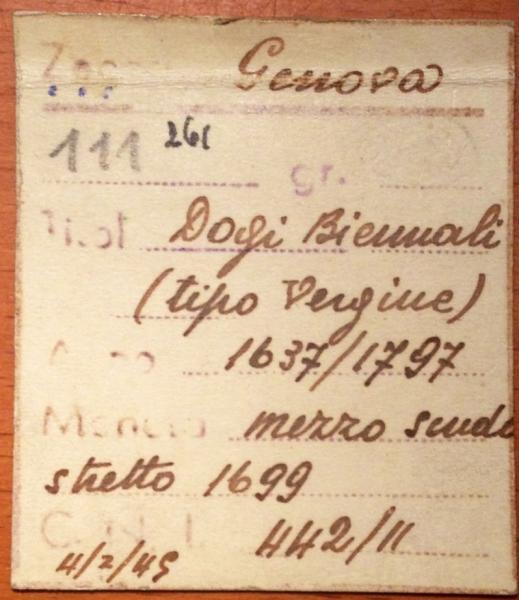 Genova
111 261 gr.
Titol Dogi Biennali
(tipo Vergine)
1637/1797
Moneta mezzo scudo
stretto 1699
C.N.I. 442/11
4/2/45